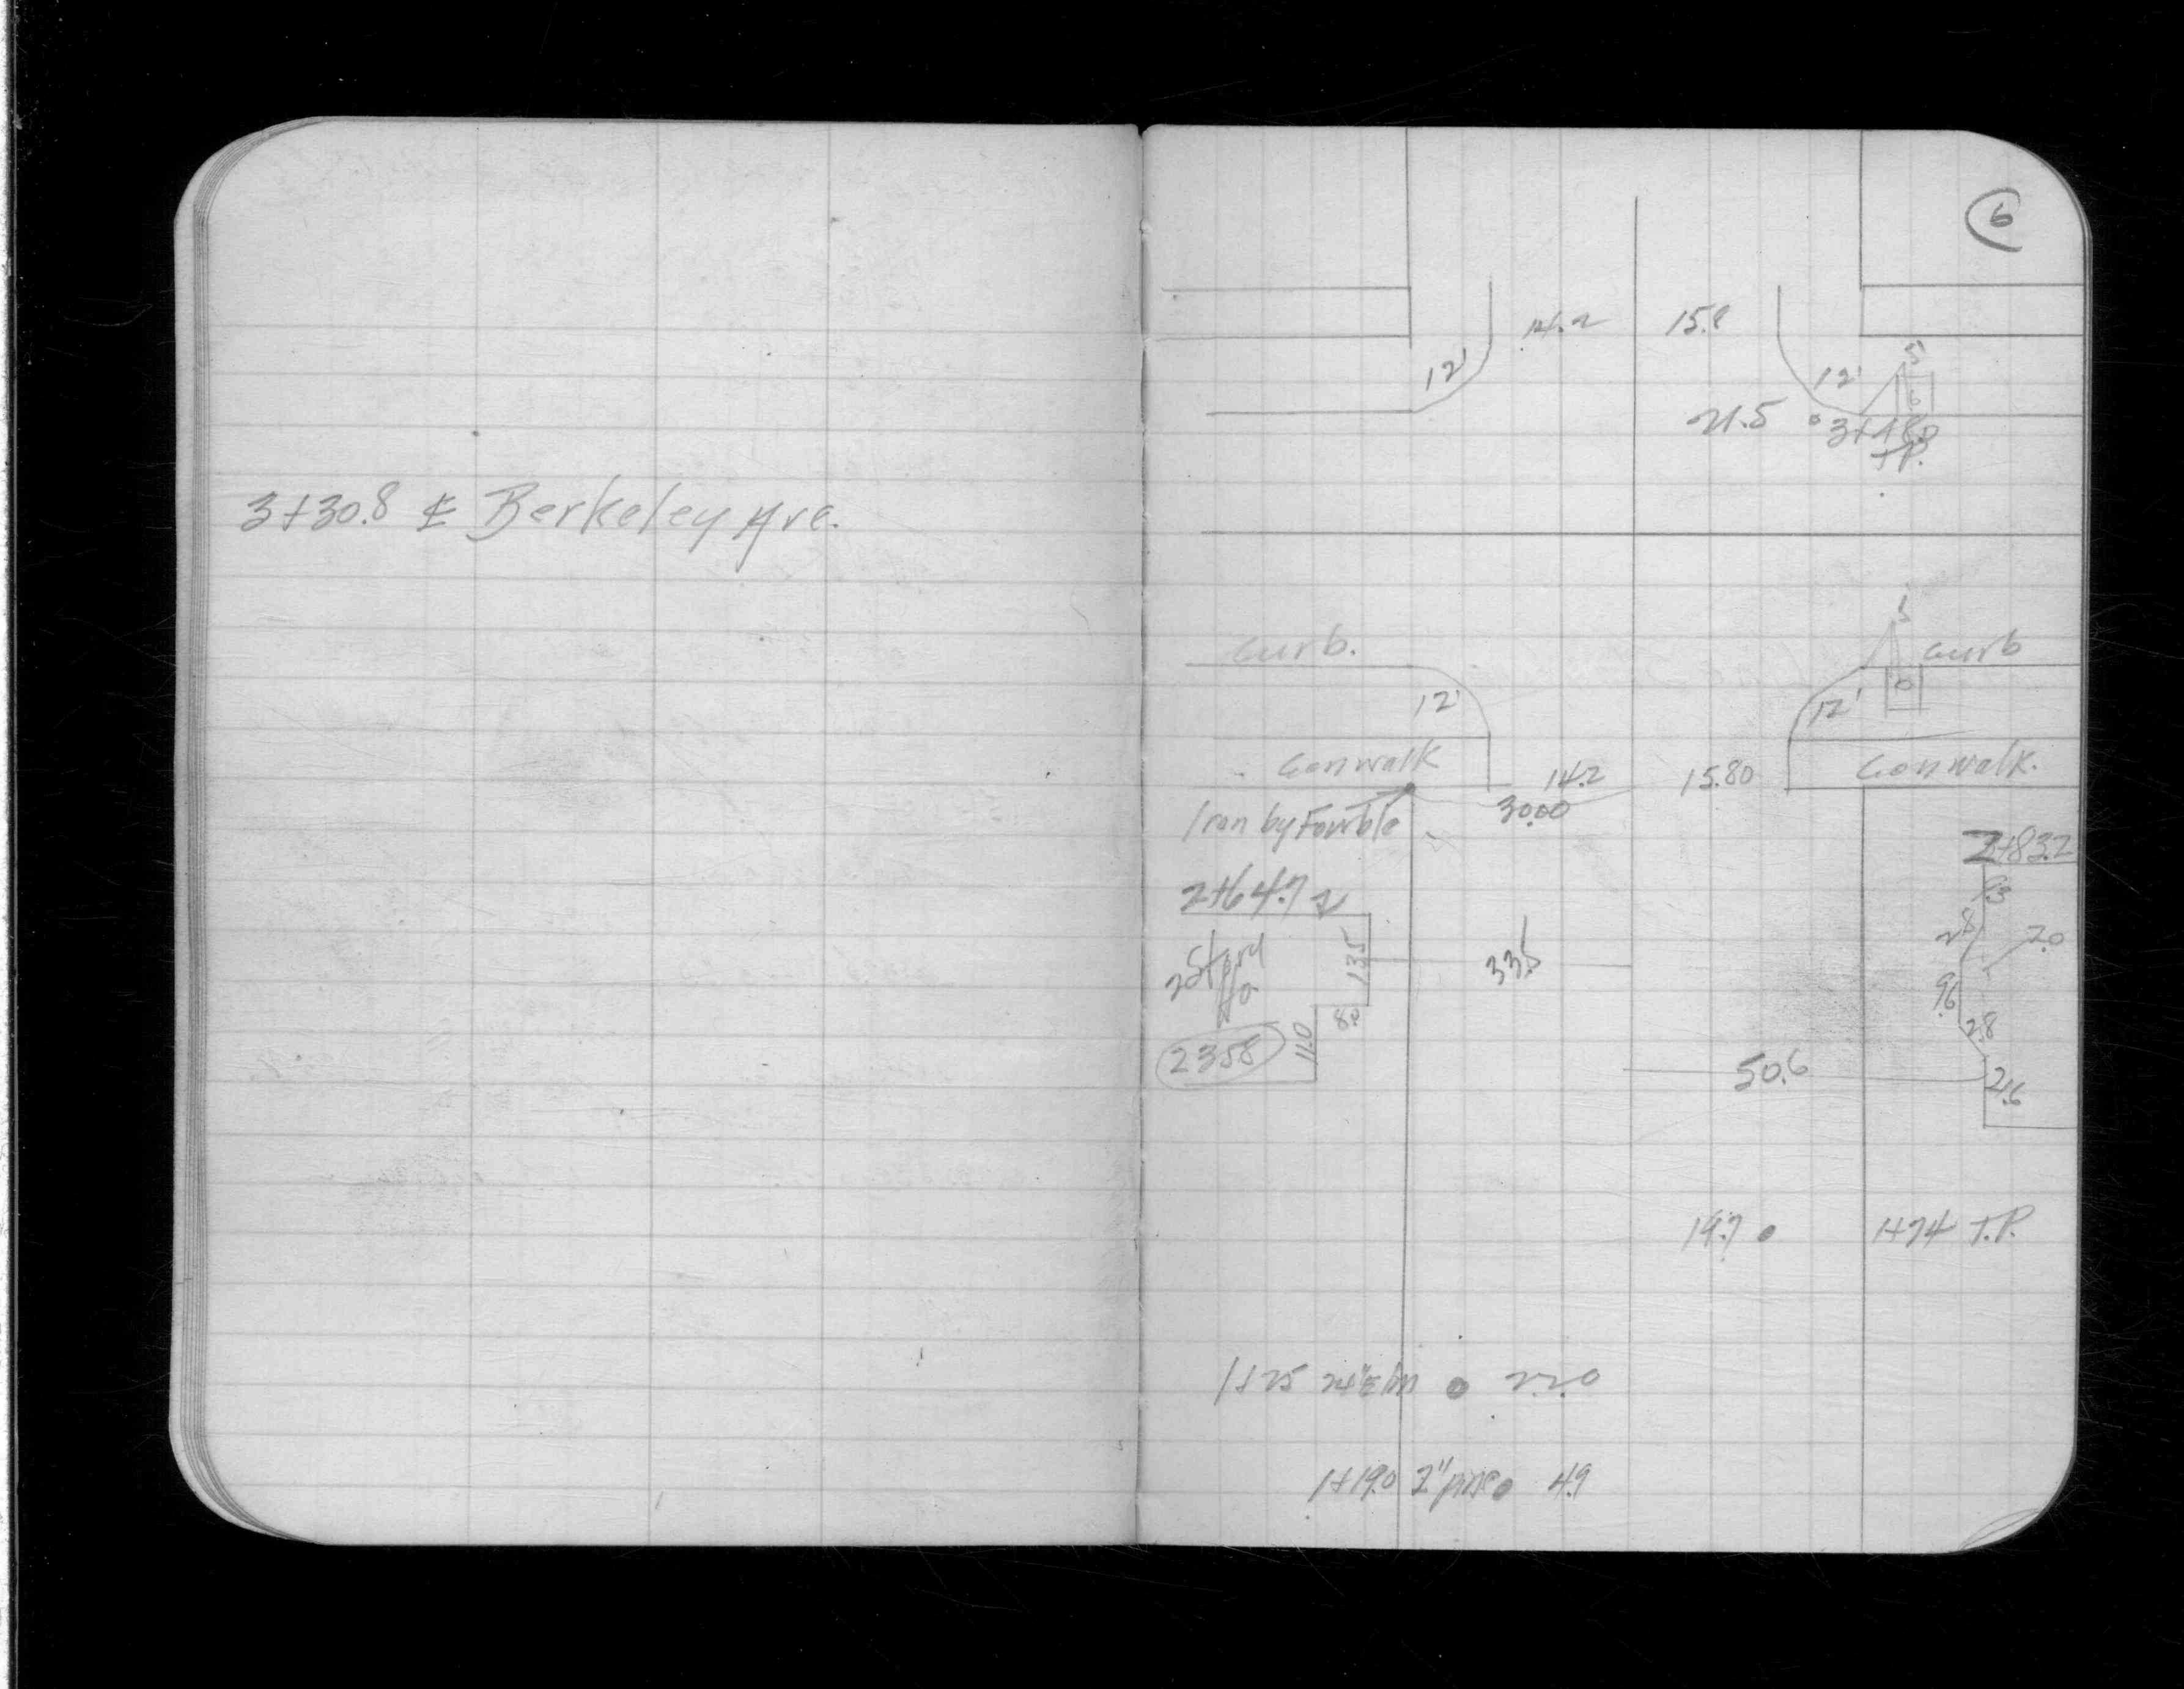 3+30.8 ⅊ Berkeley Ave.
6
14.2 15.8
12' 12' 5
21.5 3+18.8
T.P.
Curb. Curb
5
12' 12'
Con walk 14.2 15.80 Con walk.
Iron by 30.00
2+83.2
2+64.7
2 Story 13.5 33.5 2.8 7.0
9.6
8.0 2.8
2358 11.0 50.6
21.6
19.7 1+74 T.P.
1+25 24" Elm 22.0
1+19.0 2" pine 4.9